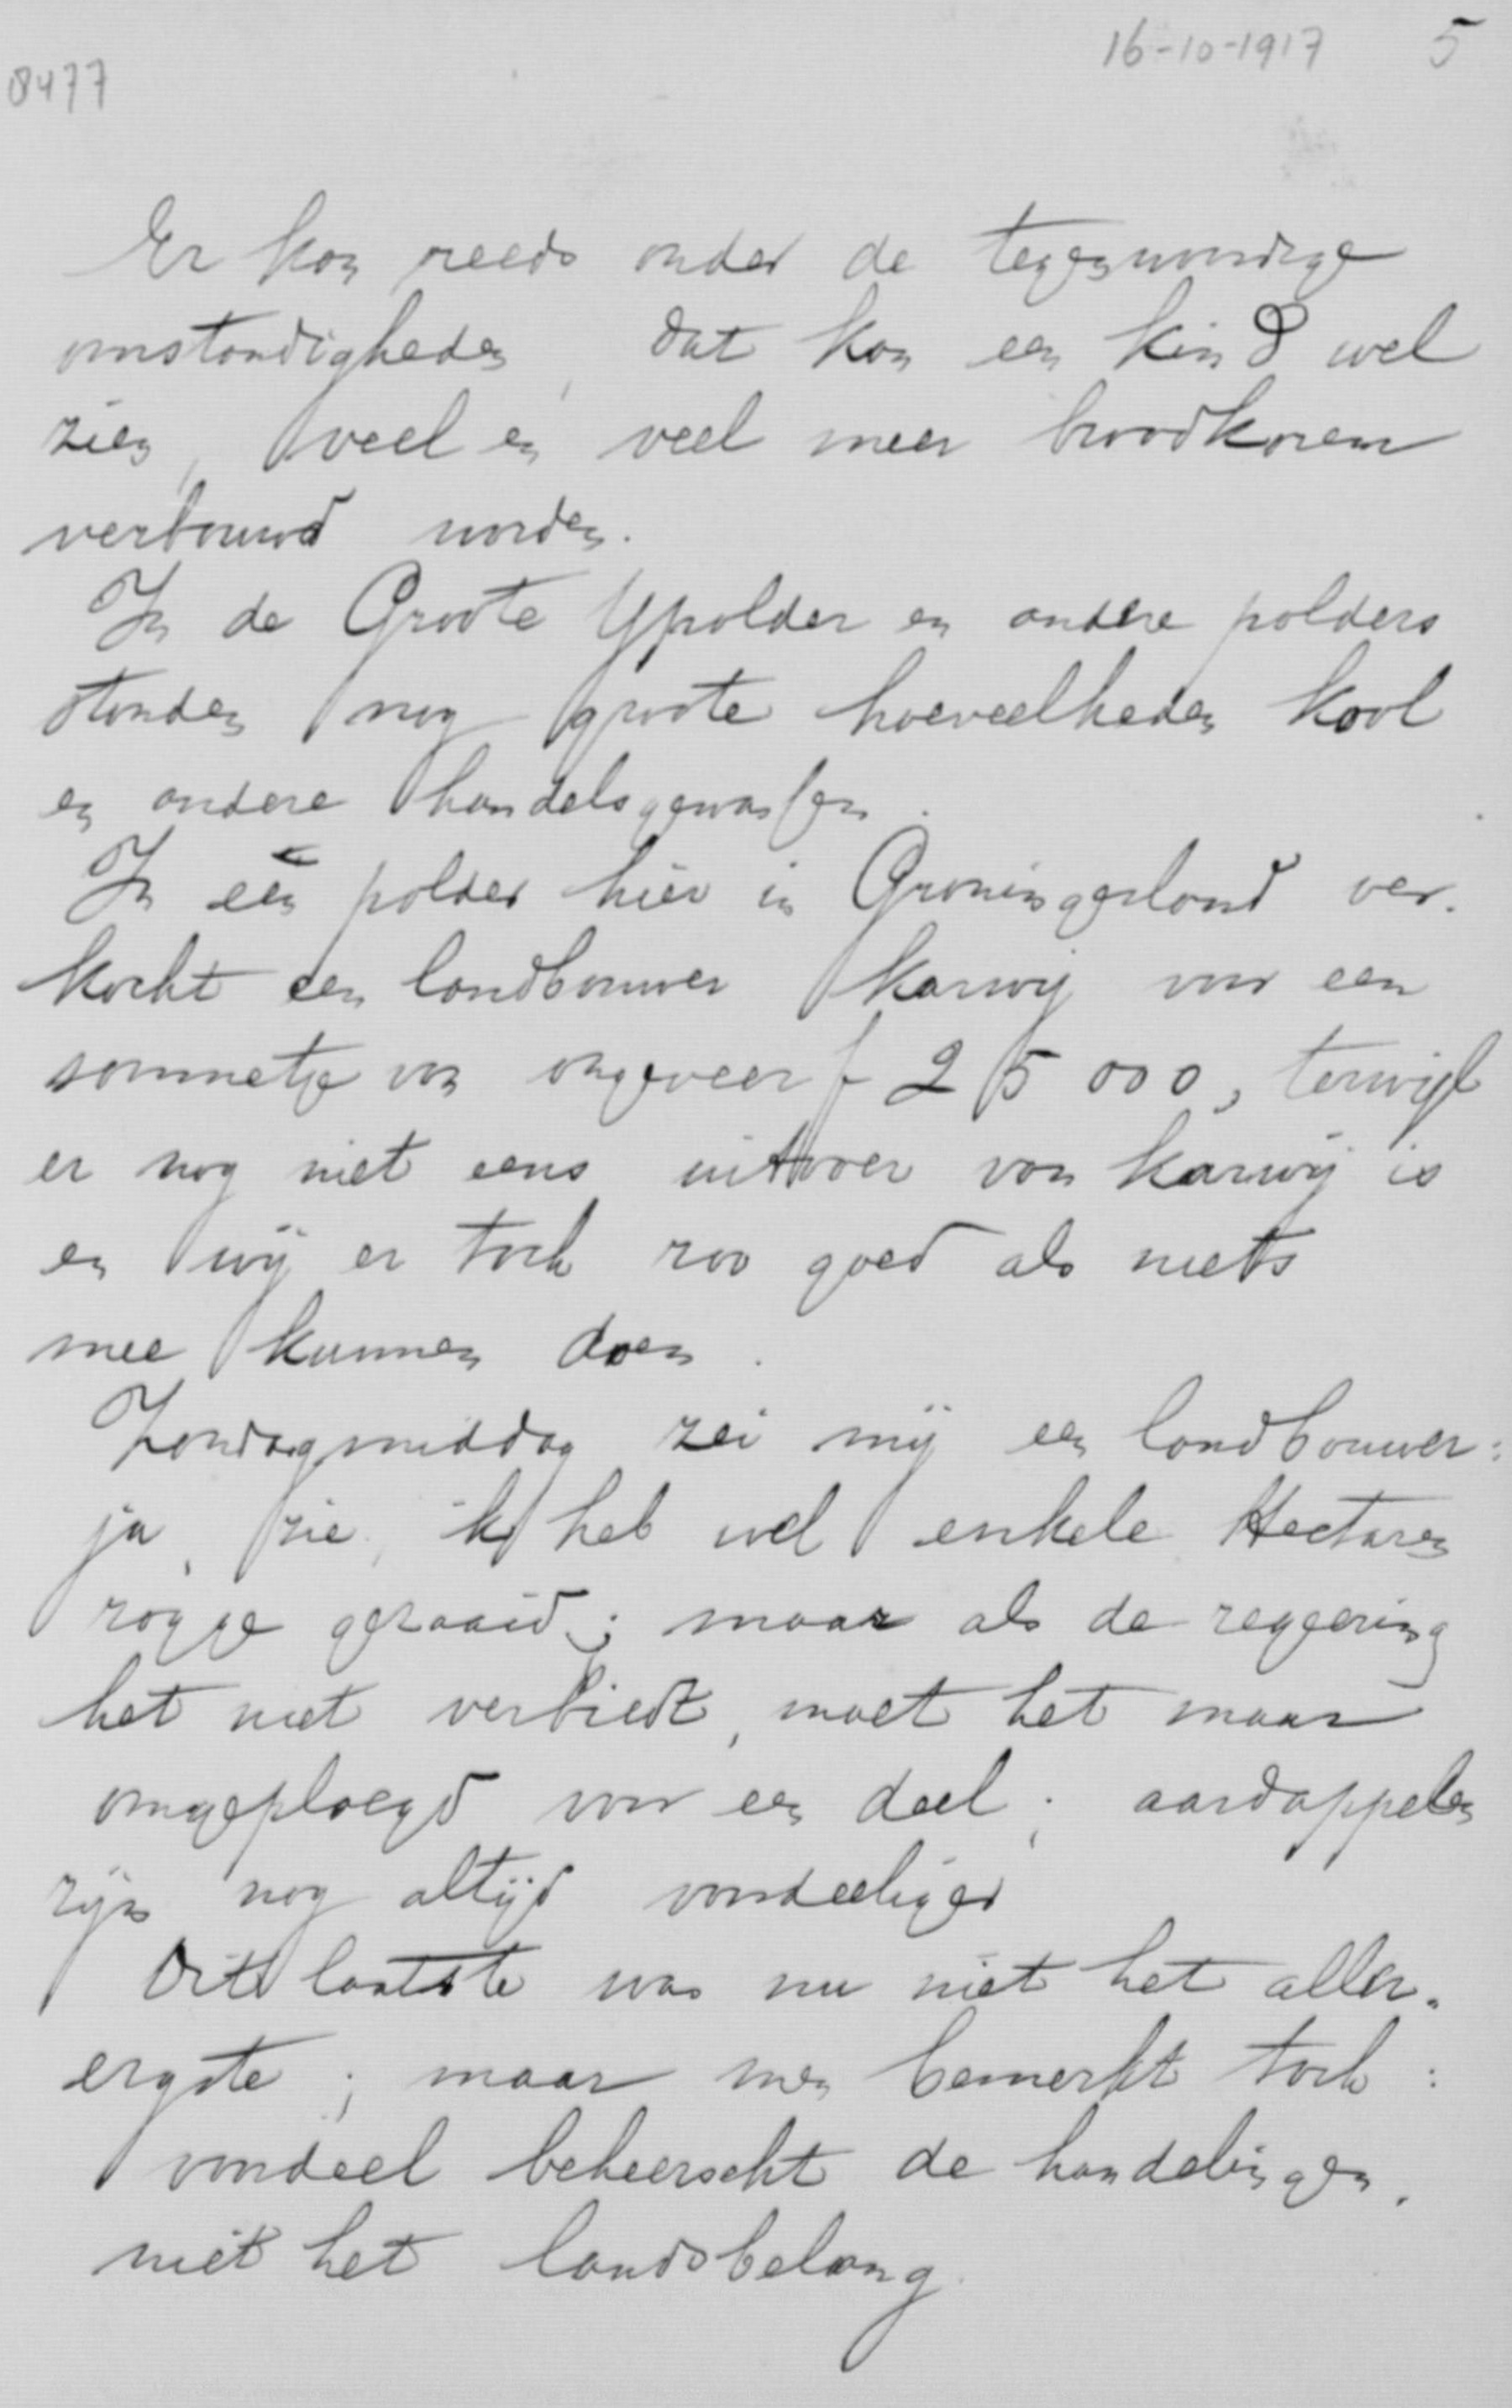 16-10-1917 5
8477
Er kon reeds onder de tegenwoordige
omstandigheden, dat kon een kind wel
zien, veel en veel meer broodkoren
verbouwd worden.
In de Groote Ypolder en andere polders
stonden nog groote hoeveelheden kool
en andere handelsgewassen.
In één polder hier in Groningerland ver-
kocht een landbouwer karwij voor een
sommetje van ongeveer f 25 000, terwijl
er nog niet eens uitvoer van karwij is
en wij er toch zoo goed als niets
mee kunnen doen.
Zondagmiddag zei mij een landbouwer:
ja, zie, ik heb wel enkele Hectaren
rogge gezaaid; maar als de regeering
het niet verbiedt, moet het maar
omgeploegd voor een deel; aardappelen
zijn nog altijd voordeeliger
Dit laatste was nu niet het aller-
ergste; maar men bemerkt toch:
voordeel beheerscht de handelingen,
niet het landsbelang.